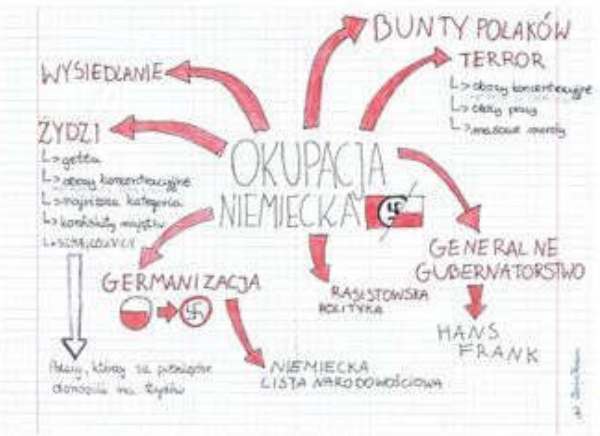 BUNTY POLAKÓW
TERROR
↳ obozy koncentracyjne
↳ obozy pracy
↳ masowe mordy
WYSIEDLANIE
ŻYDZI
↳ getta
↳ obozy koncentracyjne
↳ najniższa kategoria
↳ konfiskaty majątku
↳ SZMALCOWNICY
Polacy, którzy za pieniądze
donosili na Żydów
OKUPACJA
NIEMIECKA
GERMANIZACJA
NIEMIECKA
LISTA NARODOWOŚCIOWA
RASISTOWSKA
POLITYKA
GENERALNE
GUBERNATORSTWO
HANS
FRANK